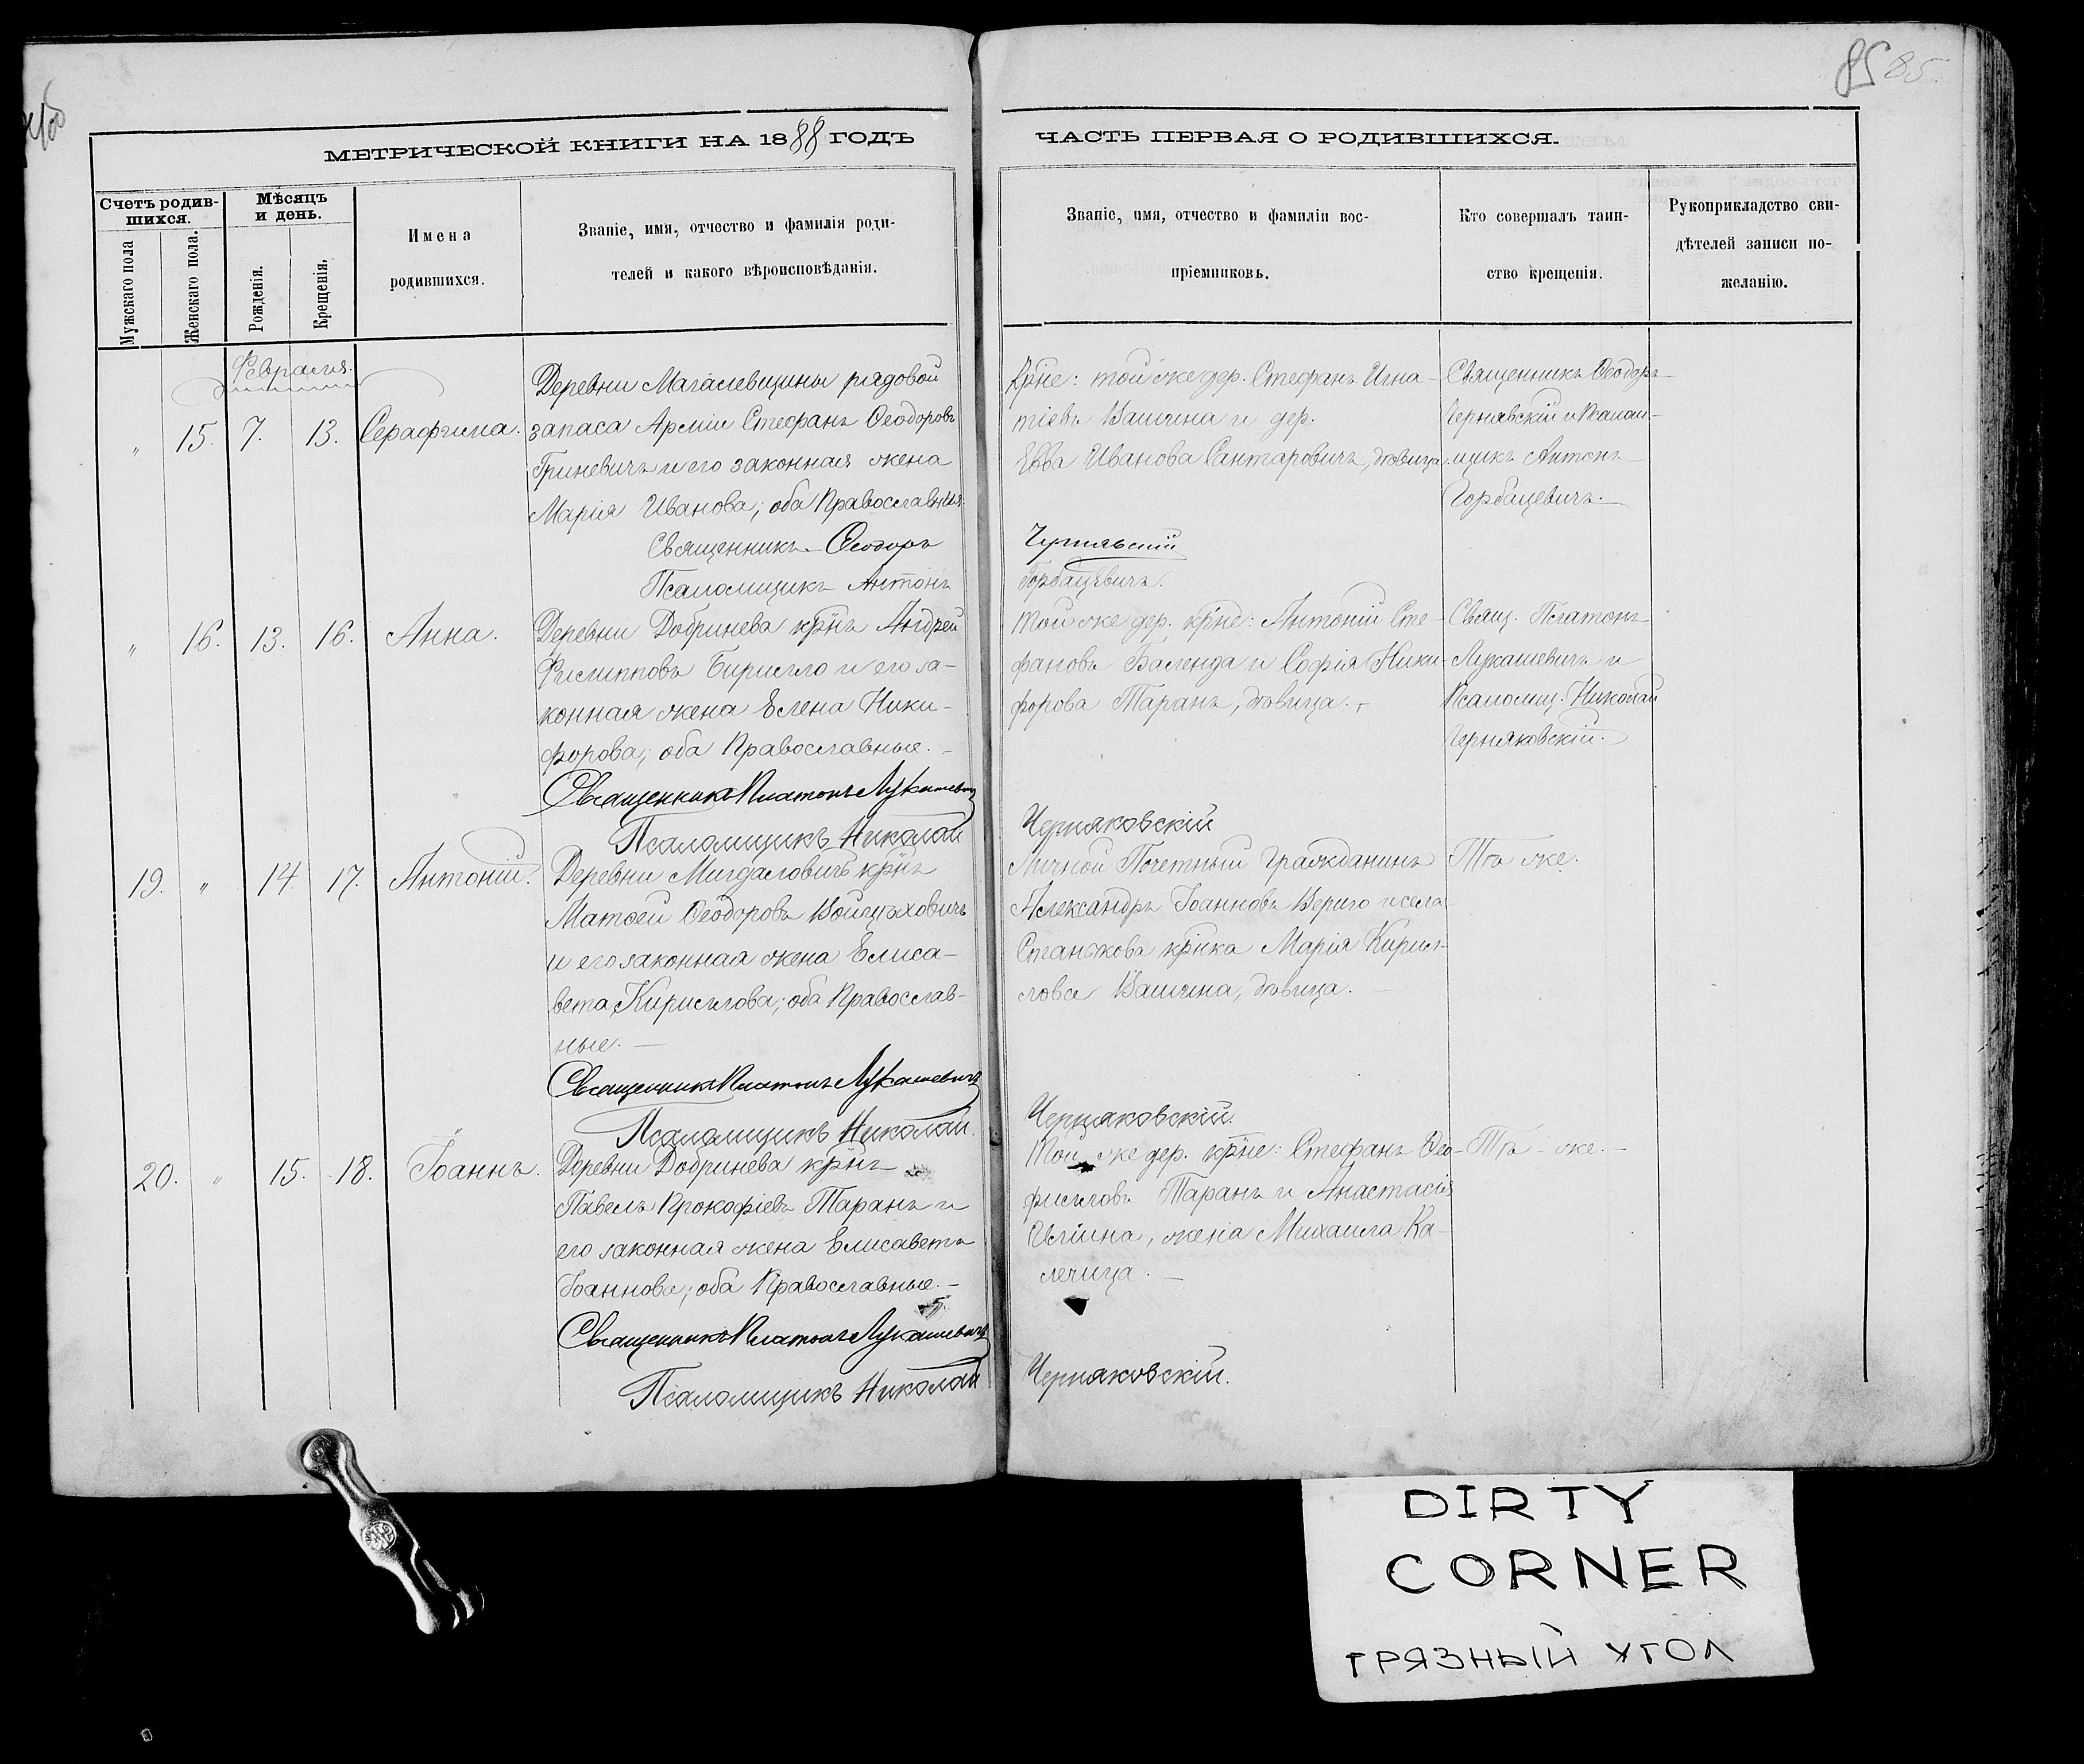 85 85.
МЕТРИЧЕСКОЙ КНИГИ НА 1888 ГОДЪ
ЧАСТЬ ПЕРВАЯ О РОДИВШИХСЯ.
Счетъ родив-
шихся.
Мужскаго пола
Женскаго пола.
Мѣсяцъ
и день.
Рожденія.
Крещенія.
Имена
родившихся.
Званіе, имя, отчество и фамилія роди-
телей и какого вѣроисповѣданія.
Званіе, имя, отчество и фамиліи вос-
пріемниковъ.
Кто совершалъ таин-
ство крещенія.
Рукоприкладство сви-
дѣтелей записи по-
желанію.
Февраля.
„ 15. 7. 13. Серафима.
Деревни Магалевщины рядовой
запаса Арміи Стефанъ Ѳеодоровъ
Гриневичъ и его законная жена
Марія Иванова; оба Православные.
Священникъ Ѳеодоръ
Псаломщикъ Антонъ
Кр̃не: той же дер. Стефанъ Игна-
тіевъ Вашчина и дер.
Евва Иванова Сантаровичъ, дѣвица.
Чернявскій
Горбацевичъ.
Священникъ Ѳеодоръ
Чернявскій и Псалом-
щикъ Антонъ
Горбацевичъ.
„ 16. 13. 16. Анна.
Деревни Добринева кр̃нъ Андрей
Филипповъ Бирилло и его за-
конная жена Елена Ники-
форова; оба Православные.
Священникъ Платонъ Лукашевичъ
Псаломщикъ Николай
Той же дер. кр̃не: Антоній Сте-
фановъ Баленда и Софія Ники-
форова Таранъ, дѣвица.
Черняковскій
Свящ. Платонъ
Лукашевичъ и
Псаломщ. Николай
Черняковскій.
19. „ 14. 17. Антоній.
Деревни Мигдаловичъ кр̃нъ
Матѳей Ѳеодоровъ Войцѣховичъ
и его законная жена Елиса-
вета Кириллова; оба Православ-
ные.
Священникъ Платонъ Лукашевичъ
Псаломщикъ Николай
Личной Почетный Гражданинъ
Александръ Іоанновъ Вериго и села
Станькова кр̃нка Марія Кирил-
лова Вашчина, дѣвица.
Черняковскій.
Тѣ же.
20. „ 15. 18. Іоаннъ.
Деревни Добринева кр̃нъ
Павелъ Прокофіевъ Таранъ и
его законная жена Елисавета
Іоаннова; оба Православные.
Священникъ Платонъ Лукашевичъ
Псаломщикъ Николай
Той же дер. кр̃не: Стефанъ Ѳео-
филовъ Таранъ и Анастасія
Иліина, жена Михаила Ка-
лечица.
Черняковскій.
Тѣ же.
DIRTY
CORNER
ГРЯЗНЫЙ УГОЛ